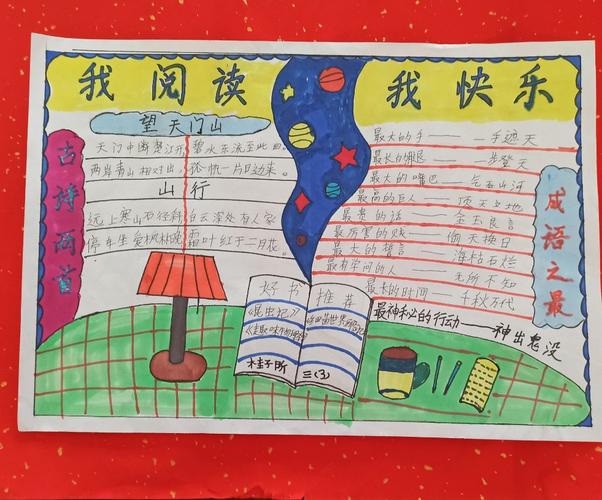 我阅读
我快乐
古诗两首
望天门山
天门中断楚江开 碧水东流至此回
两岸青山相对出 孤帆一片日边来
山行
远上寒山石径斜 白云深处有人家
停车坐爱枫林晚 霜叶红于二月花
成语之最
最大的手——一手遮天
最长的腿——一步登天
最大的嘴巴——气吞山河
最高的巨人——顶天立地
最贵的话——金玉良言
最厉害的贼——偷天换日
最大的誓言——海枯石烂
最有学问的人——无所不知
最长的时间——千秋万代
最神秘的行动——神出鬼没
好书
推荐
《昆虫记》
三(3)